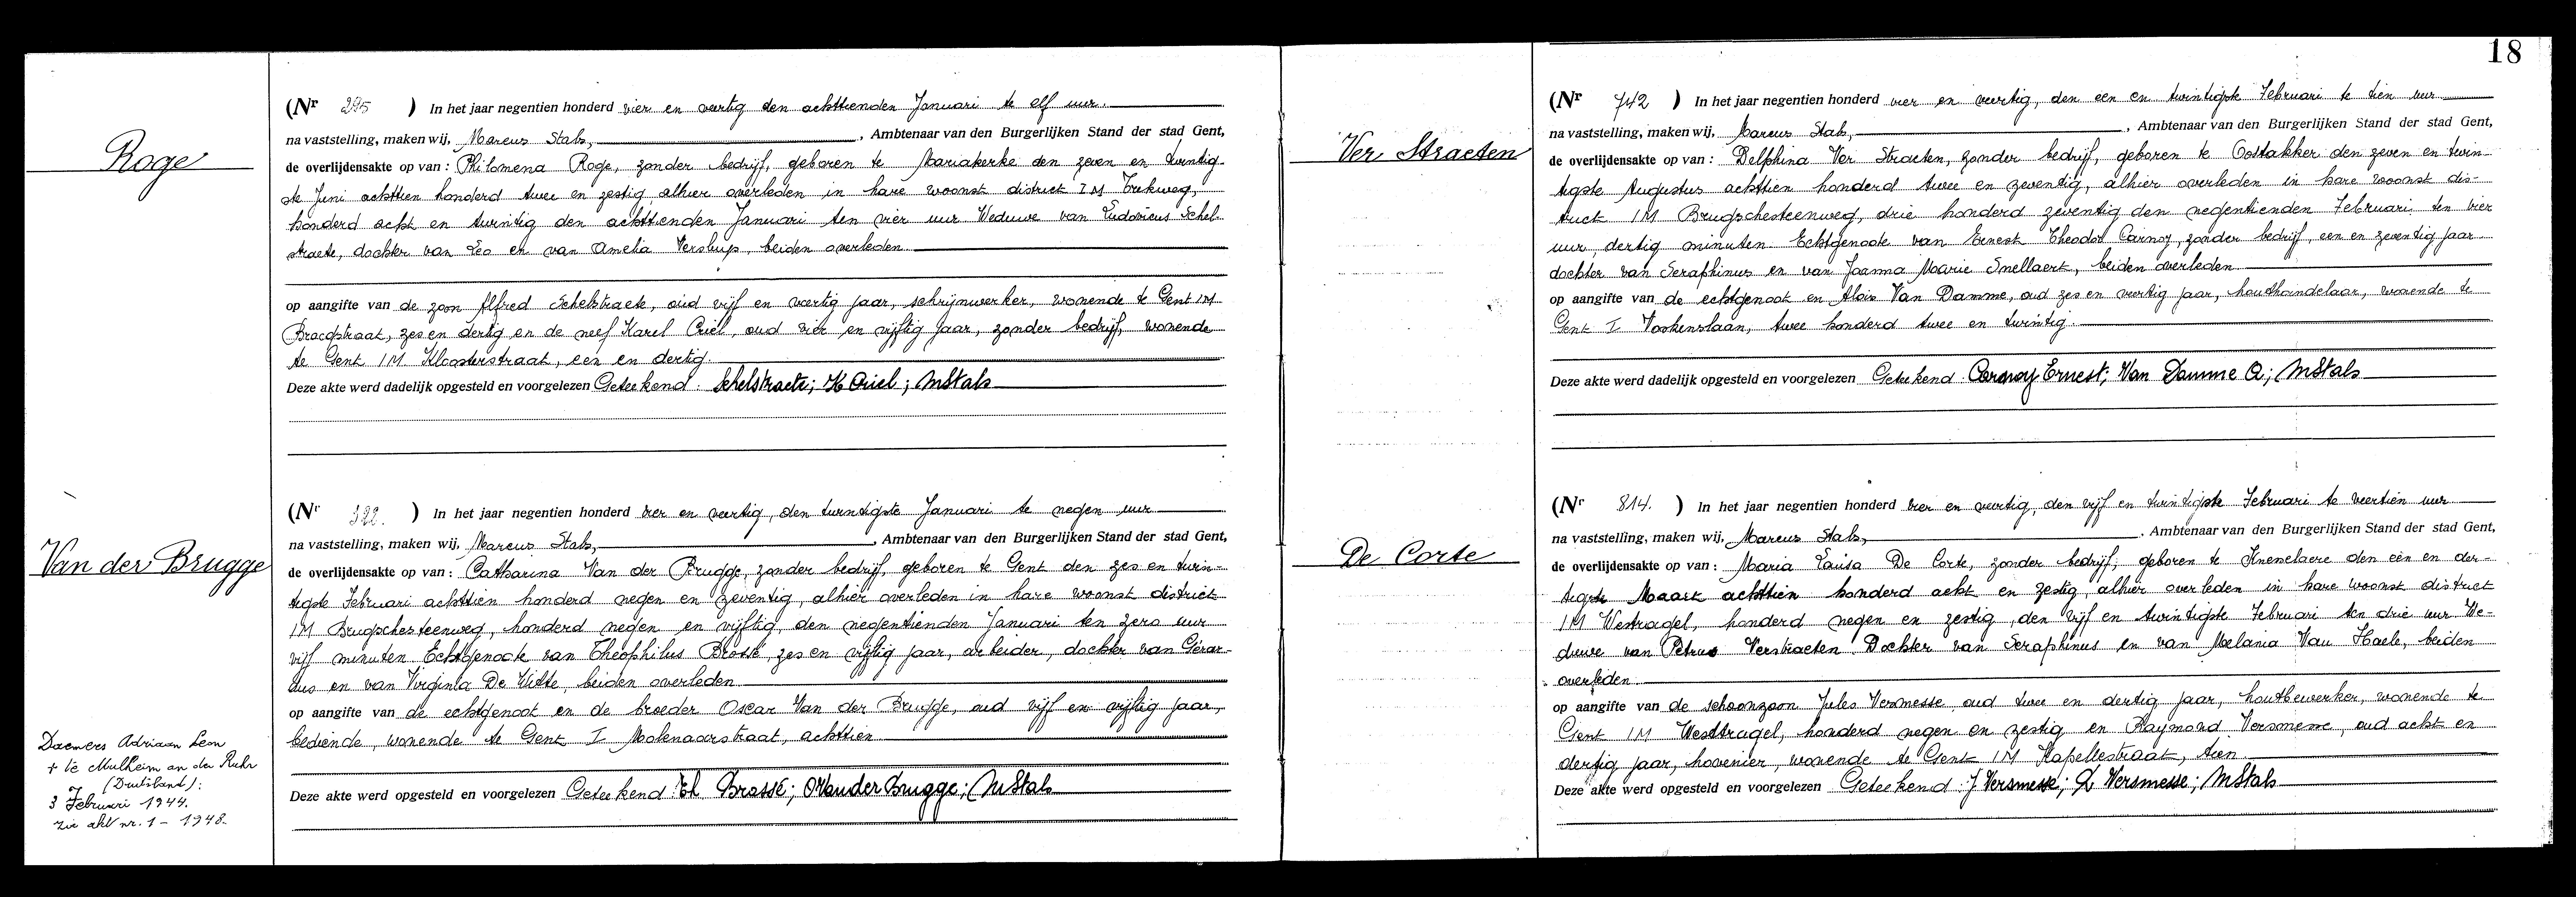 Roge
(Nr 295 ) In het jaar negentien honderd vier en veertig den achttienden Januari te elf uur.
na vaststelling, maken wij, Marcus Stals, , Ambtenaar van den Burgerlijken Stand der stad Gent,
de overlijdensakte op van : Philomena Roge, zonder bedrijf, geboren te Mariakerke den zeven en twintig-
ste Juni achttien honderd twee en zestig, alhier overleden in hare woonst district IM Trekweg,
honderd acht en twintig den achttienden Januari ten vier uur Weduwe van Ludovicus Schel-
straete, dochter van Leo en van Amelia beiden overleden
op aangifte van de zoon Alfred Schelstraete, oud vijf en veertig jaar, schrijnwerker, wonende te Gent IM
zes en dertig en de neef Karel Criel, oud vier en vijftig jaar, zonder bedrijf, wonende
te Gent IM Kloosterstraat, een en dertig.
Deze akte werd dadelijk opgesteld en voorgelezen Geteekend: Schelstraete; K Criel; MStals
Van der Brugge
(Nr 322. ) In het jaar negentien honderd vier en veertig, den twintigste Januari te negen uur
na vaststelling, maken wij, Marcus Stals, , Ambtenaar van den Burgerlijken Stand der stad Gent,
de overlijdensakte op van : Catharina Van der Brugge, zonder bedrijf, geboren te Gent den zes en twin-
tigste Februari achttien honderd negen en zeventig, alhier overleden in hare woonst district
IM Brugschesteenweg, honderd negen en vijftig, den negentienden Januari ten zero uur
vijf minuten Echtgenoote van Theophilus Brossé, zes en vijftig jaar, arbeider, dochter van Gérar-
dus en van Virginia De Witte, beiden overleden
op aangifte van de echtgenoot en de broeder Oscar Van der Brugge, oud vijf en vijftig jaar,
bediende, wonende te Gent I Molenaarsstraat, achttien
Deze akte werd opgesteld en voorgelezen Geteekend: Th Brossé; OVanderBrugge; MStals
Daemers Adriaan Leon
+ te Mulheim an der Ruhr
(Duitsland):
3 Februari 1944.
zie akt nr. 1 - 1948.
18
Ver Straeten
(Nr 742 ) In het jaar negentien honderd vier en veertig, den een en twintigste Februari te tien uur
na vaststelling, maken wij, Marcus Stals, , Ambtenaar van den Burgerlijken Stand der stad Gent,
de overlijdensakte op van : Delphina Ver Straeten, zonder bedrijf, geboren te Oostakker den zeven en twin-
tigste Augustus achttien honderd twee en zeventig, alhier overleden in hare woonst dis-
trict IM Brugschesteenweg, drie honderd zeventig den negentienden Februari ten vier
uur, dertig minuten Echtgenoote van Ernest Theodor Carnoy, zonder bedrijf, een en zeventig jaar
dochter van Seraphinus en van Joanna Marie Snellaert, beiden overleden
op aangifte van de echtgenoot en Aloïs Van Damme, oud zes en veertig jaar, houthandelaar, wonende te
Gent I Voskenslaan, twee honderd twee en twintig.
Deze akte werd dadelijk opgesteld en voorgelezen Geteekend: Carnoy Ernest; Van Damme A; MStals
De Corte
(Nr 814. ) In het jaar negentien honderd vier en veertig, den vijf en twintigste Februari te veertien uur
na vaststelling, maken wij, Marcus Stals, , Ambtenaar van den Burgerlijken Stand der stad Gent,
de overlijdensakte op van : Maria Louisa De Corte, zonder bedrijf, geboren te Knesselaere den een en der-
tigste Maart achttien honderd acht en zestig, alhier overleden in hare woonst district
IM Westragel, honderd negen en zestig, den vijf en twintigste Februari ten drie uur We-
duwe van Petrus Verstraeten Dochter van Seraphinus en van Melania Van Haele, beiden
overleden
op aangifte van de schoonzoon Jules Versmesse oud twee en dertig jaar, houtbewerker, wonende te
Gent IM Westtragel, honderd negen en zestig en Raymond Versmesse, oud acht en
dertig jaar, hovenier, wonende te Gent IM Kapellestraat, tien
Deze akte werd opgesteld en voorgelezen Geteekend: J Versmesse; R Versmesse; MStals